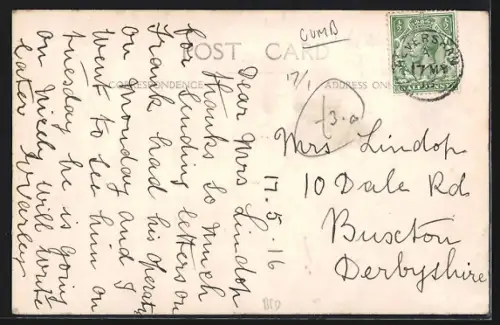 CUMB
POST CARD
CORRESPONDENCE
ADDRESS ON
17/1
£3.0
17.5.16
Dear Mrs Lindop
Thanks so much
for sending letters on
Frank had his operat
on Monday and I
went to see him on
tuesday he is going
on nicely will write
later
Mrs Lindop
10 Dale Rd
Buxton
Derbyshire
ULVERSTON
17 MY